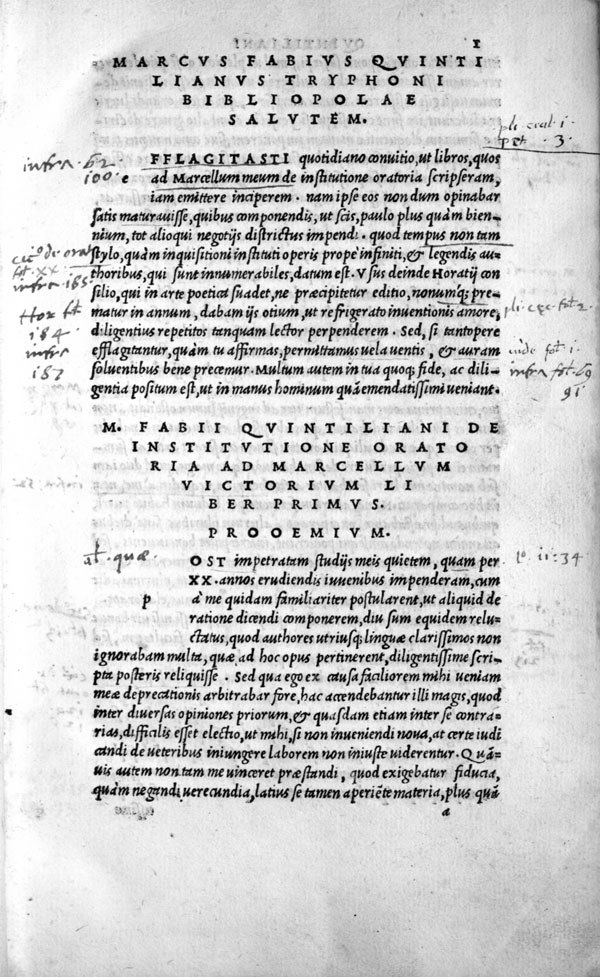 1
MARCVS FABIVS QVINTI
LIANVS TRYPHONI
BIBLIOPOLAE
SALVTEM.
EFFLAGITASTI quotidiano conuitio, ut libros, quos
ad Marcellum meum de institutione oratoria scripseram,
iam emittere inciperem. nam ipse eos non dum opinabar
satis maturauisse, quibus componendis, ut scis, paulo plus quàm bien-
nium, tot alioqui negotijs districtus impendi. quod tempus non tam
stylo, quàm inquisitioni instituti operis prope infiniti, & legendis au-
thoribus, qui sunt innumerabiles, datum est. Vsus deinde Horatij con
silio, qui in arte poetica suadet, ne præcipitetur editio, nonumq; pre-
matur in annum, dabam ijs otium, ut refrigerato inuentionis amore,
diligentius repetitos tanquam lector perpenderem. Sed, si tantopere
efflagitantur, quàm tu affirmas, permittamus uela uentis, & auram
soluentibus bene precemur. Multum autem in tua quoq; fide, ac dili-
gentia positum est, ut in manus hominum quàm emendatissimi ueniant.
M. FABII QVINTILIANI DE
INSTITVTIONE ORATO
RIA AD MARCELLVM
VICTORIVM LI
BER PRIMVS.
PROOEMIVM.
pOST impetratam studijs meis quietem, quam per
XX. annos erudiendis iuuenibus impenderam, cum
à me quidam familiariter postularent, ut aliquid de
ratione dicendi componerem, diu sum equidem relu-
ctatus, quod authores utriusq; linguæ clarissimos non
ignorabam multa, quæ ad hoc opus pertinerent, diligentissime scri-
pta posteris reliquisse. Sed qua ego ex causa faciliorem mihi ueniam
meæ deprecationis arbitrabar fore, hac accendebantur illi magis, quod
inter diuersas opiniones priorum, & quasdam etiam inter se contra-
rias, difficilis esset electio, ut mihi, si non inueniendi noua, at certe iudi
candi de ueteribus iniungere laborem non iniuste uiderentur. Quã-
uis autem non tam me uinceret præstandi, quod exigebatur fiducia,
quàm negandi uerecundia, latius se tamen aperiẽte materia, plus quã
a
infra
100
infra 185
184
infra
187
3.
quæ
11:34
91